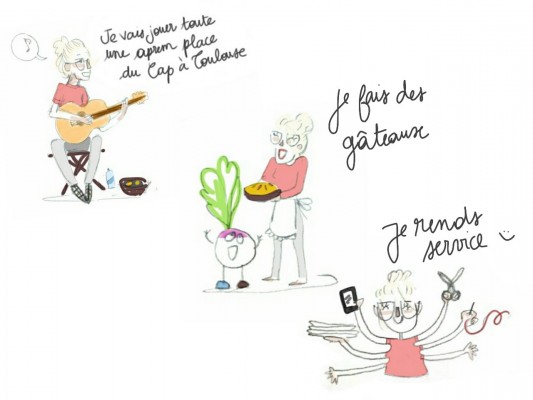 Je vais jouer toute
une aprem place
du Cap à Toulouse
Je fais des
gâteaux
Je rends
service :)